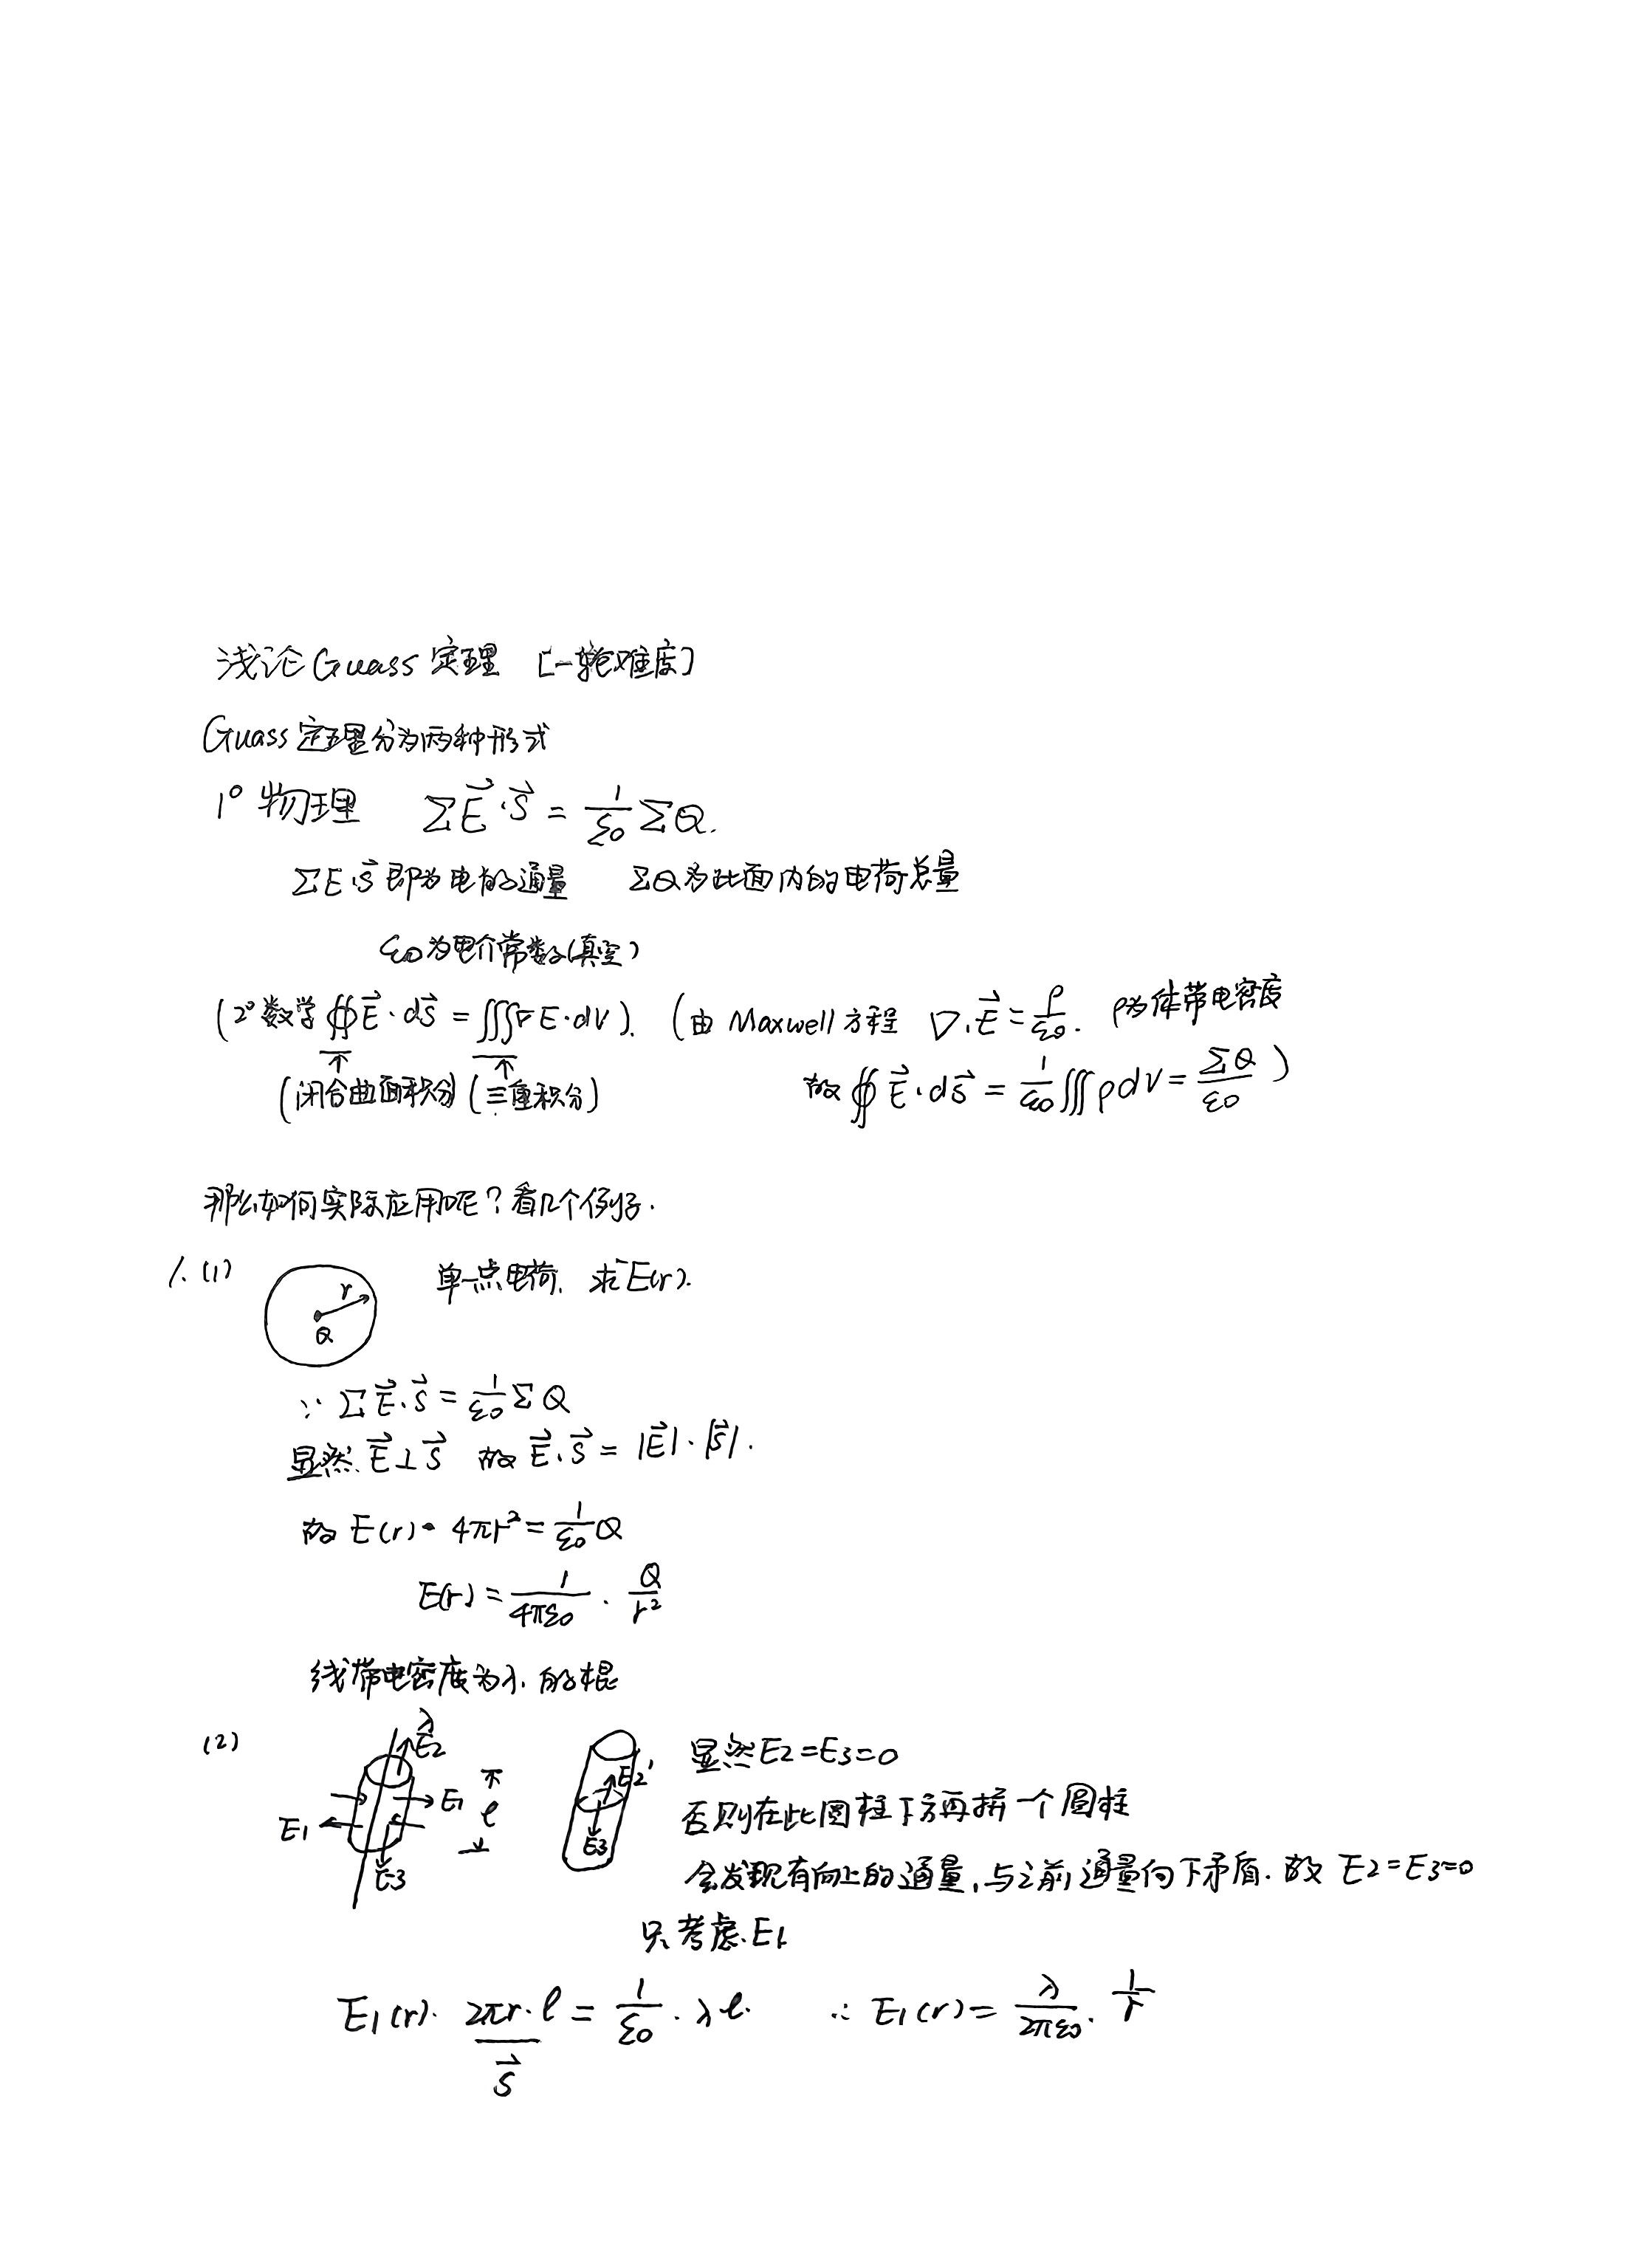 浅论Guass定理 [一轮难度]
Guass定理分为两种形式
1° 物理 ΣE⃗·S⃗ = 1/ε0 ΣQ.
ΣE·S⃗ 即为电的通量 ΣQ为此面内的电荷总量
ε0为电介常数(真空)
(2°数学 ∯E⃗·dS⃗ = ∭∇E·dV). (由 Maxwell 方程 ∇·E⃗ = ρ/ε0. ρ为体带电密度
(闭合曲面积分) (三重积分) 故 ∯E⃗·dS⃗ = 1/ε0 ∭ρdV = ΣQ/ε0 )
那么如何实际应用呢?看几个例子.
1. (1) r Q 单一点电荷, 求E(r).
∵ ΣE⃗·S⃗ = 1/ε0 ΣQ
显然 E⃗⊥S⃗ 故 E⃗·S⃗ = |E⃗|·|S⃗|.
故 E(r)·4πr² = 1/ε0 Q
E(r) = 1/4πε0 · Q/r²
线带电密度为λ的棍
(2) λ E2 E1 E1 E3 l E2' E3 显然E2=E3=0
否则在此圆柱下方再拼一个圆柱
会发现有向上的通量,与之前通量向下矛盾.故 E2=E3=0
只考虑E1
E1(r)· 2πr·l = 1/ε0 · λl. ∴ E1(r) = λ/2πε0 · 1/r
S⃗